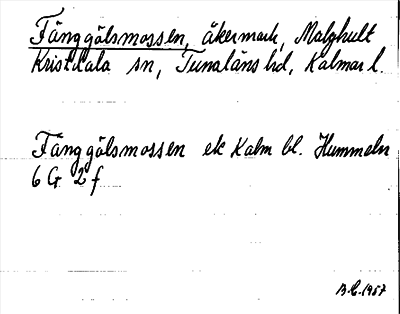 Fånggölsmossen, åkermark, Malghult
Kristdala sn, Tunaläns hd, Kalmar l.
Fånggölsmossen ek Kalm bl. Hummeln
6 G 2 f
B.E. 1957